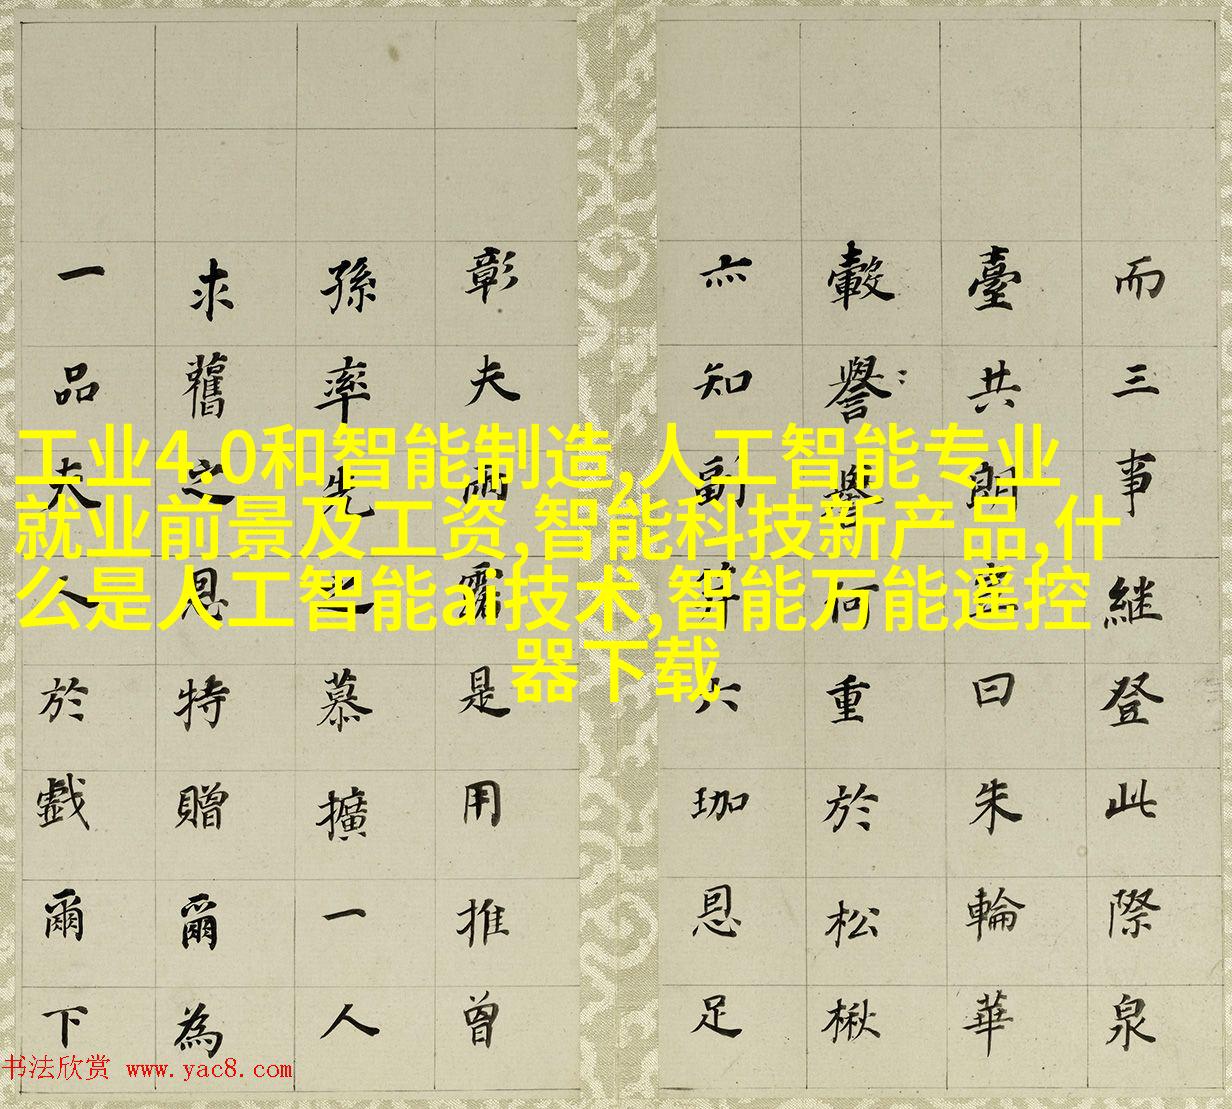 工业4.0和智能制造,人工智能专业
就业前景及工资,智能科技新产品,什
么是人工智能ai技术,智能万能遥控
器下载
而三事継登此際泉
臺共朗遥曰朱輪華
轂譽舉何重於松楸
亦知副笄六珈恩足
彰夫雨露是用推曾
孫率先之慕擴一人
求舊之恩特贈爾為
一品夫人於戲爾下
书法欣赏 www.yac8.com